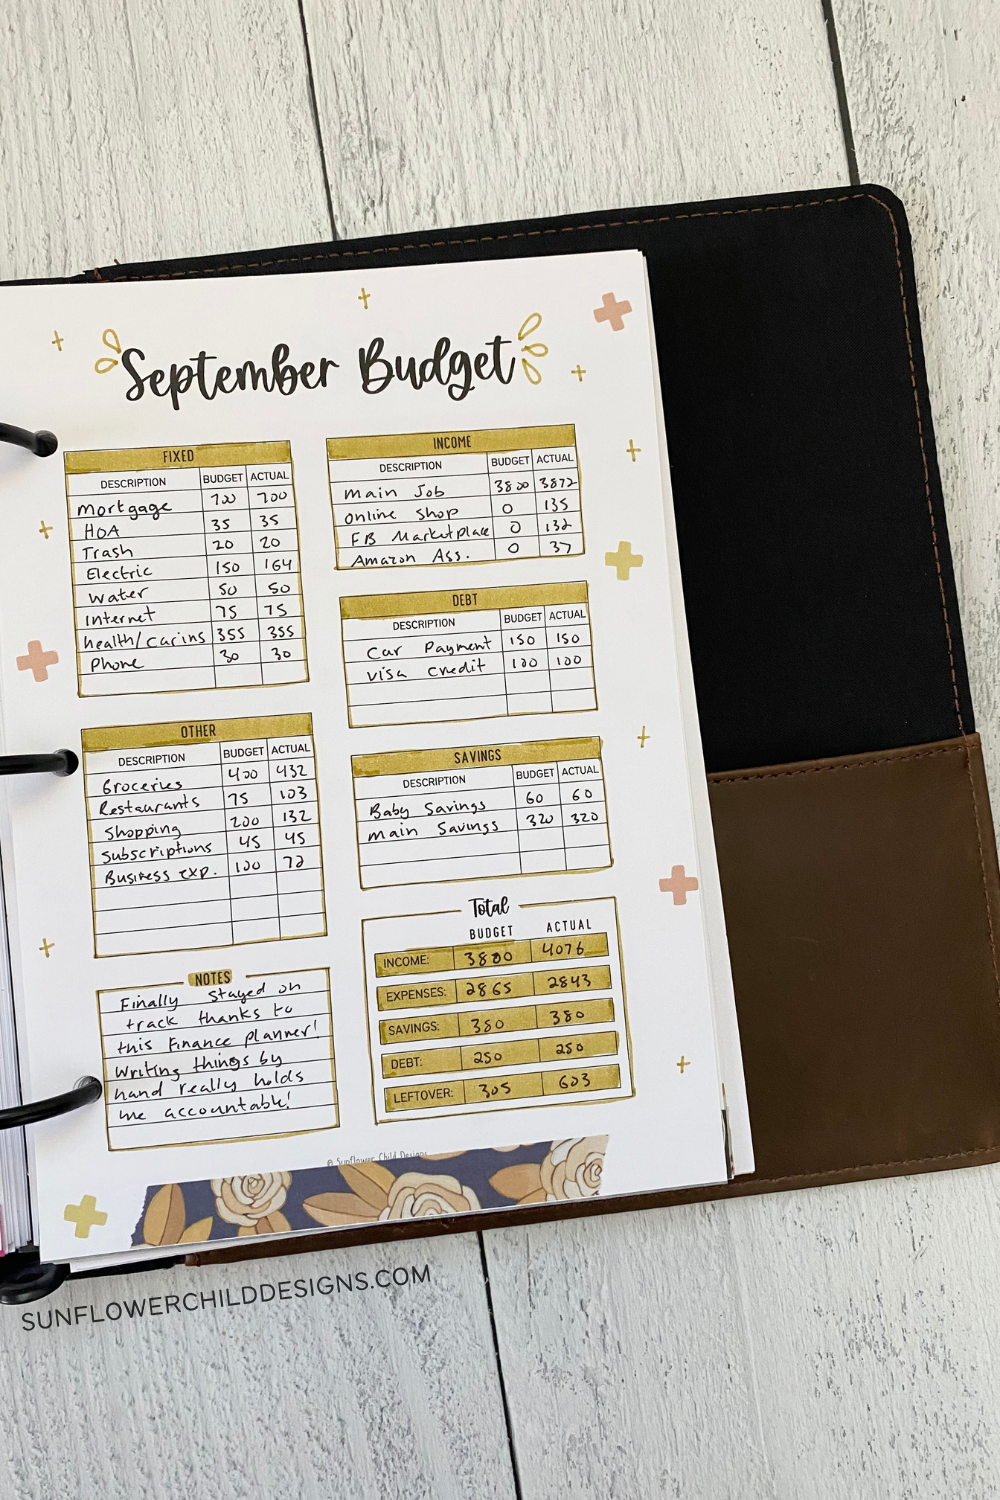 September Budget
FIXED
DESCRIPTION BUDGET ACTUAL
mortgage 700 700
HOA 35 35
Trash 20 20
Electric 150 164
water 50 50
Internet 75 75
health/car ins 355 355
Phone 30 30
INCOME
DESCRIPTION BUDGET ACTUAL
Main Job 3800 3872
online shop 0 135
FB Marketplace 0 132
Amazon Ass. 0 37
DEBT
DESCRIPTION BUDGET ACTUAL
Car Payment 150 150
visa credit 100 100
OTHER
DESCRIPTION BUDGET ACTUAL
Groceries 400 432
Restaurants 75 103
Shopping 200 132
Subscriptions 45 45
Business exp. 100 72
SAVINGS
DESCRIPTION BUDGET ACTUAL
Baby Savings 60 60
main Savings 320 320
Total
BUDGET ACTUAL
INCOME: 3800 4076
EXPENSES: 2865 2843
SAVINGS: 380 380
DEBT: 250 250
LEFTOVER: 305 603
NOTES
Finally stayed on
track thanks to
this finance planner!
Writing things by
hand really holds
me accountable!
© Sunflower Child Designs
SUNFLOWERCHILDDESIGNS.COM